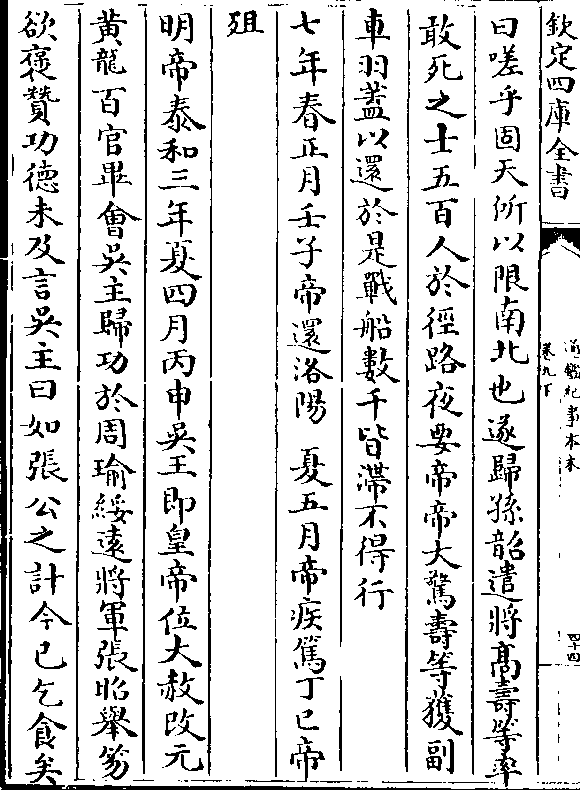 欽定四庫全書
通鑑紀事本末
卷九下
四十四
曰嗟乎固天所以限南北也遂歸孫韶遣將高壽等率
敢死之士五百人於徑路夜要帝帝大驚壽等獲副
車羽蓋以還於是戰船數千皆滯不得行
七年春正月壬子帝還洛陽 夏五月帝疾篤丁巳帝
殂
明帝泰和三年夏四月丙申吳王即皇帝位大赦改元
黃龍百官畢會吳主歸功於周瑜綏遠將軍張昭舉笏
欲褒贊功德未及言吳主曰如張公之計今已乞食矣